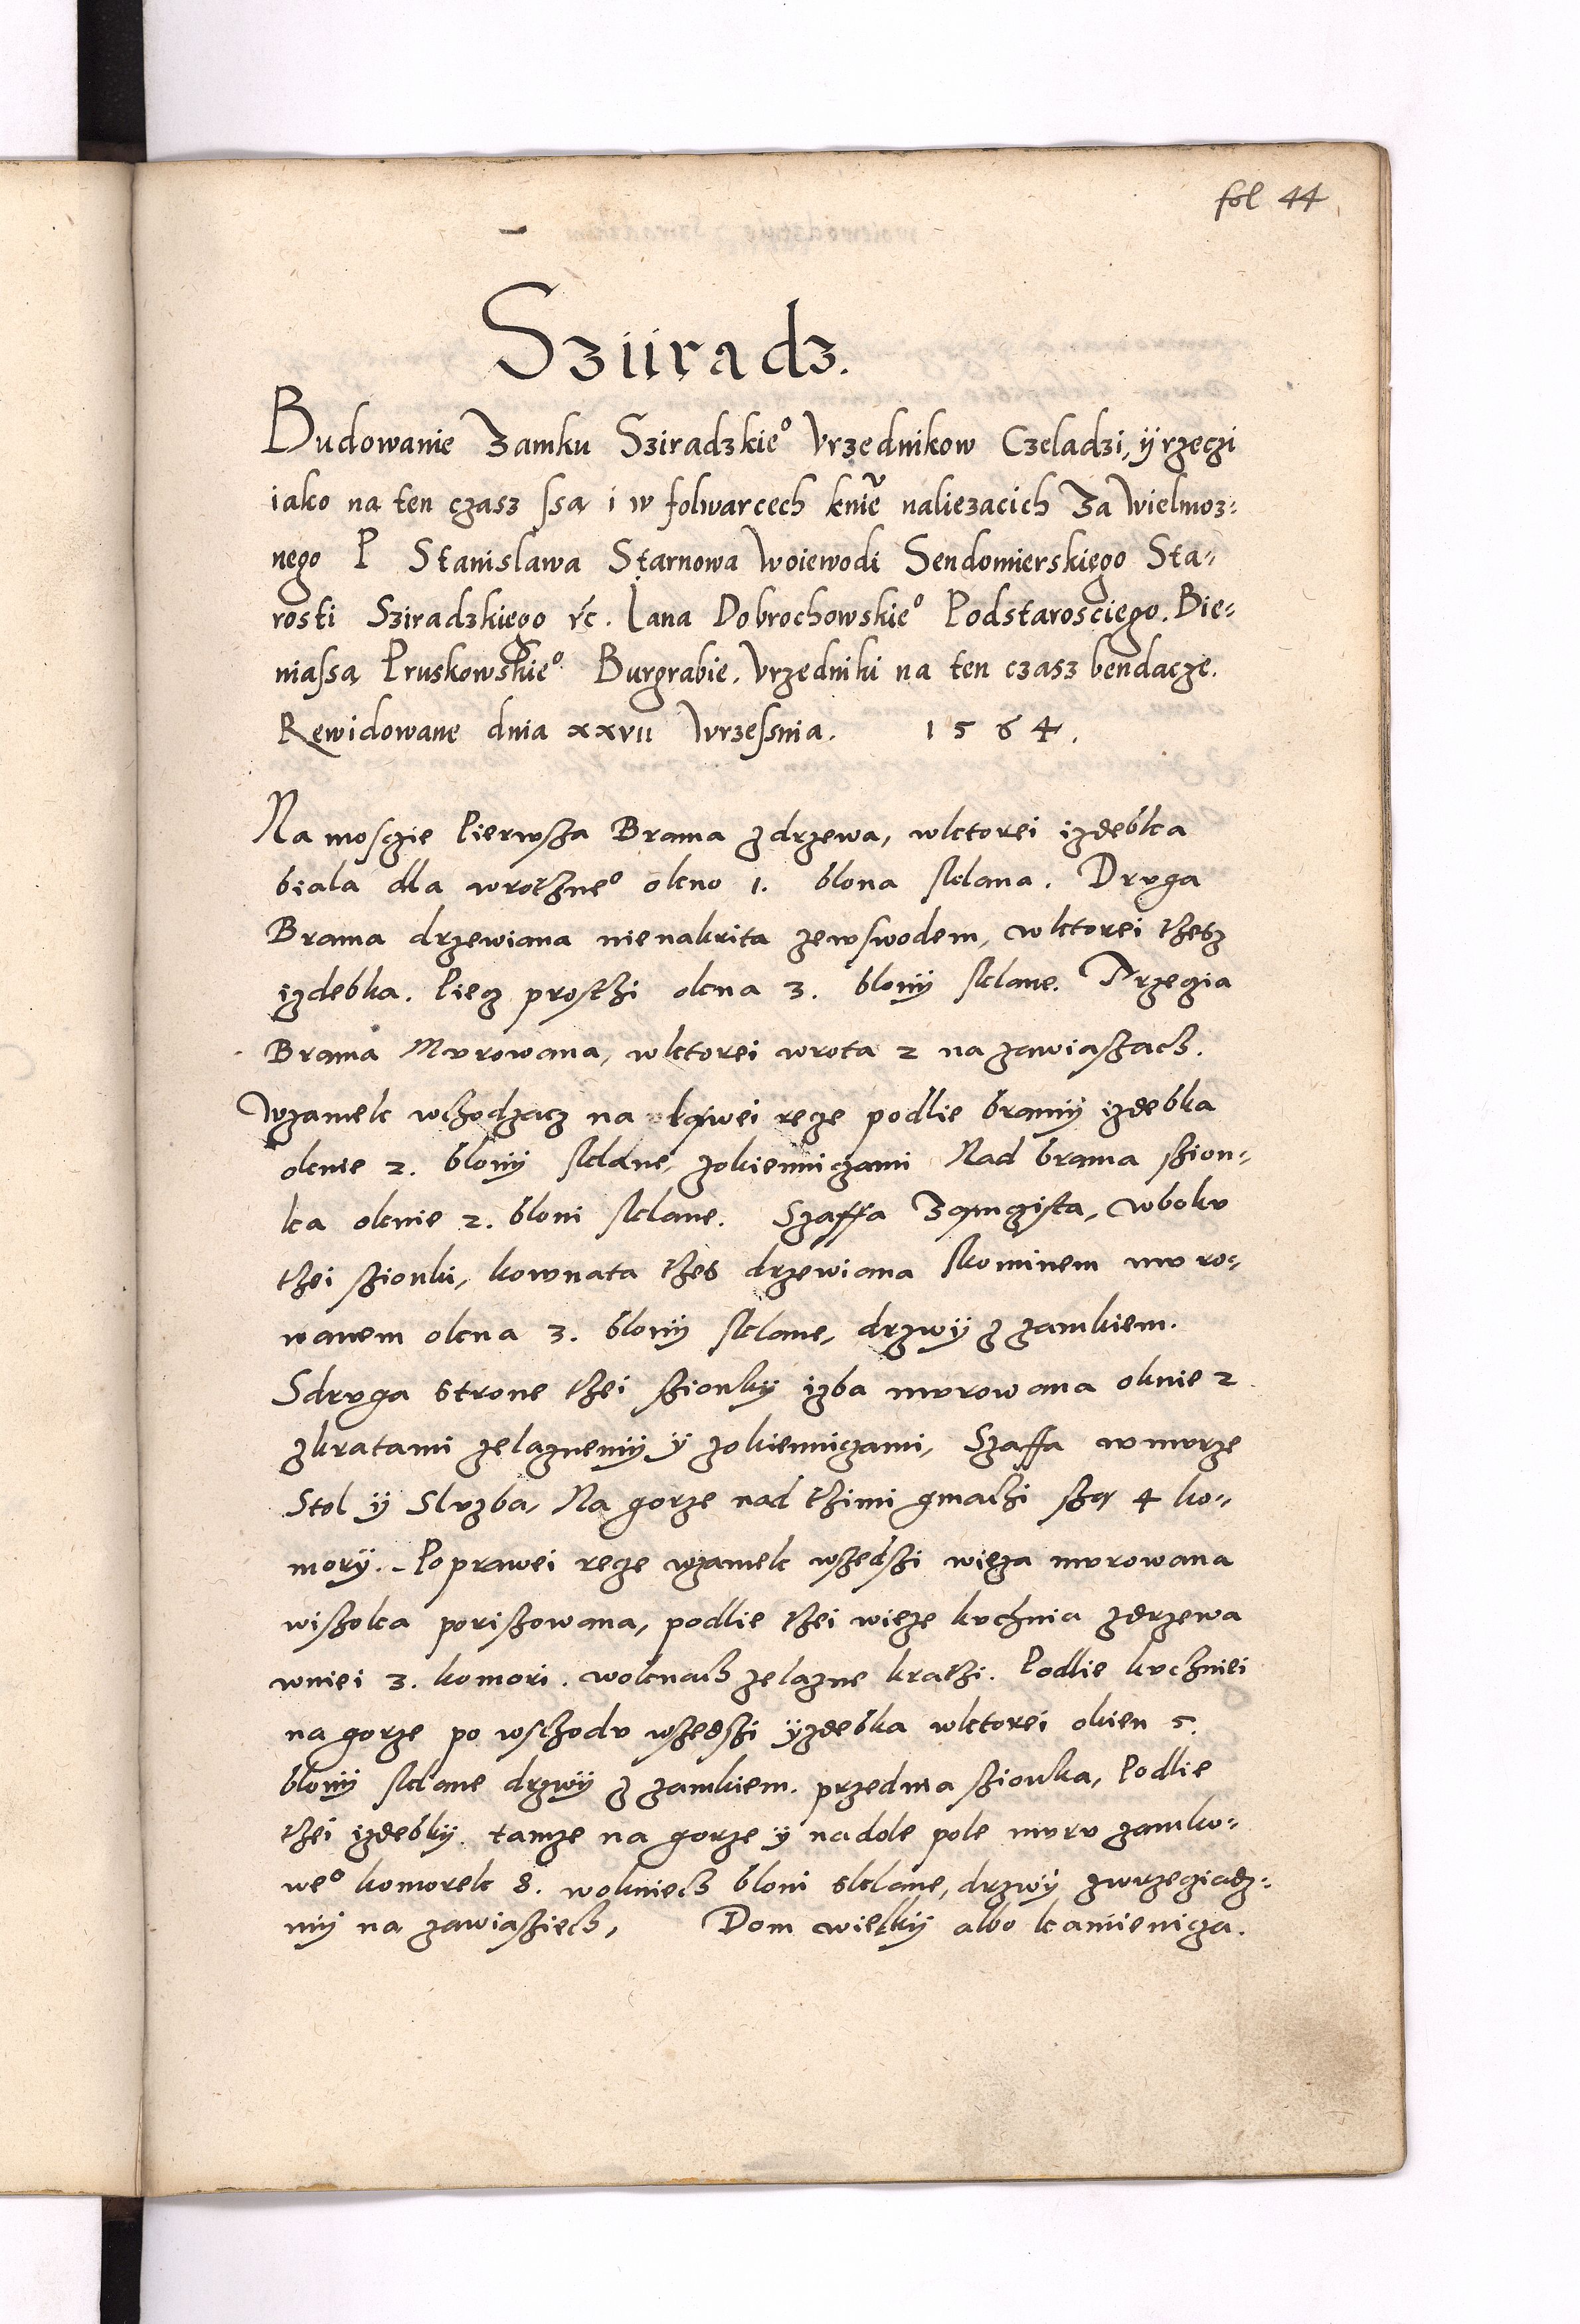 fol 44
Sziiradz.
Budowanie Zamku Sziradzkie° Vrzednikow Czeladzi, ÿ rzeczi
iako na ten czasz ssą i w folwarcech knie͂ naliezacich Za Wielmoz-
nego P Stanislawa Starnowa Woiewodi Sendomierskiego Sta-
rosti Sziradzkiego rc. Iana Dobrochowskie° Podstarosciego. Bie-
niassa Pruskowskie° Burgrabie. Vrzedniki na ten czasz bendacze.
Rewidowane dnia xxvii Wrzessnia. 1564.
Na mosczie Pierwsza Brama z drzewa, wktorei izdebka
biala dla wrothne° okno 1. blona sklana. Druga
Brama drzewiana nienakrita zewswodem, wktorei thesz
izdebka. Piecz prosthi okna 3. blonÿ sklane. Trzecia
Brama Mvrowana, wktorei wrota 2 na zawiaszach.
Wzamek wchodzacz na lewei rece podlie bramÿ izdebka
oknie 2. blonÿ sklane, zokienniczami Nad brama szion-
ka oknie 2. bloni sklane. Szaffa Zamczista, wbokv
thei szionki, kownata thes drzewiana skominem mvro-
wanem okna 3. blonÿ sklane, drzwÿ z zamkiem.
Sdrvga strone thei szionkÿ izba mvrowana oknie 2
zkratami zelaznemÿ ÿ zokienniczami, Szaffa wmvrze
Stol ÿ Slvzba, Na gorze nad thimi gmachi szą 4 ko-
morÿ. Poprawei rece wzamek wszedszi wieza mvrowana
wiszoka poriszowana, podlie thei wieze kvchnia zdrzewa
wniei 3. komori. woknach zelazne krathi. Podlie kvchniei
na gorze po wschodv wszedszi ÿzdebka wktorei okien 5.
blonÿ sklane drzwÿ z zamkiem. przednia szionka, Podlie
thei izdebkÿ tamze na gorze ÿ nadole pole mvrv zamko-
we° komorek 8. wokniech bloni sklane, drzwÿ zwrzeciadz-
mÿ na zawiasziech, Dom wielkÿ albo kamienicza.